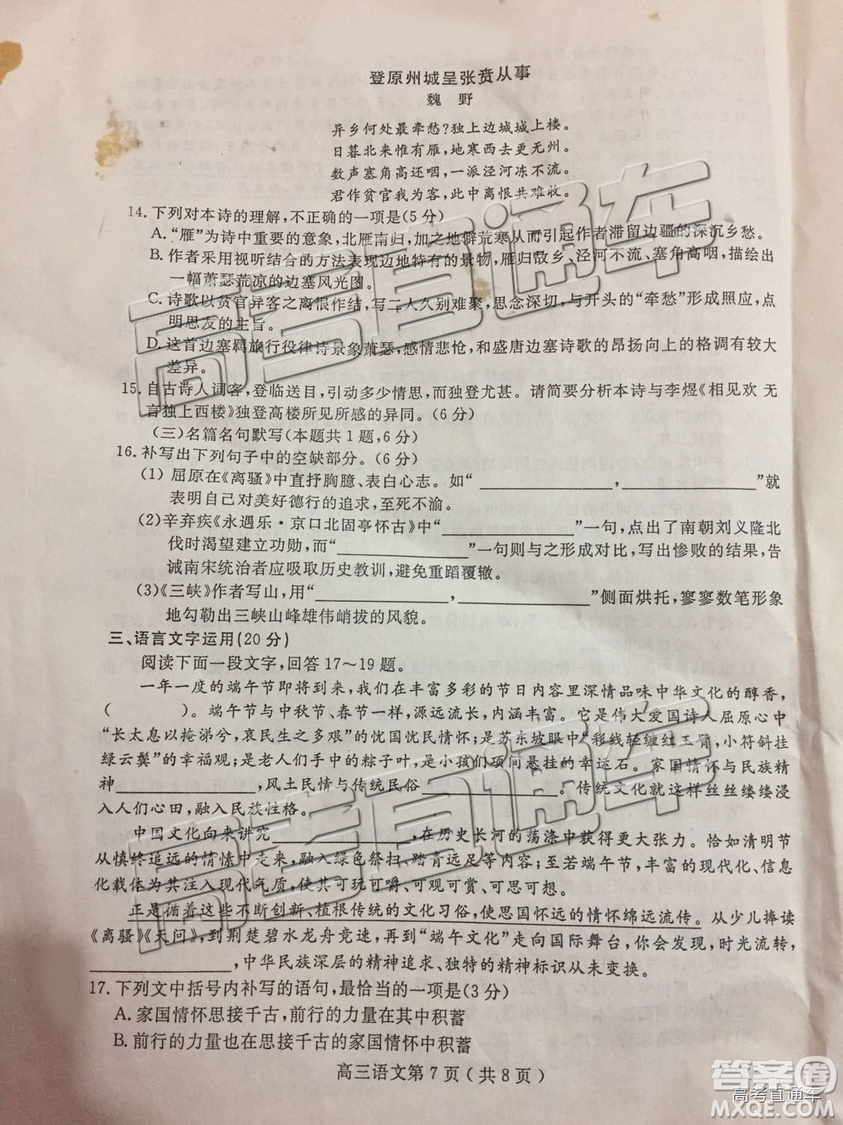 登原州城呈张贲从事
魏 野
异乡何处最牵愁?独上边城城上楼。
日暮北来惟有雁,地寒西去更无州。
数声塞角高还咽,一派泾河冻不流。
君作贫官我为客,此中离恨共难收。
14.下列对本诗的理解,不正确的一项是(5分)
A.“雁”为诗中重要的意象,北雁南归,加之地僻荒寒从而引起作者滞留边疆的深沉乡愁。
B.作者采用视听结合的方法表现边地特有的景物,雁归故乡、泾河不流、塞角高咽,描绘出
一幅萧瑟荒凉的边塞风光图。
C.诗歌以贫官异客之离恨作结,写二人久别难聚,思念深切,与开头的“牵愁”形成照应,点
明思友的主旨。
D.这首边塞羁旅行役律诗景象萧瑟,感情悲怆,和盛唐边塞诗歌的昂扬向上的格调有较大
差异。
15.自古诗人词客,登临送目,引动多少情思,而独登尤甚。请简要分析本诗与李煜《相见欢 无
言独上西楼》独登高楼所见所感的异同。(6分)
(三)名篇名句默写(本题共1题,6分)
16.补写出下列句子中的空缺部分。(6分)
(1)屈原在《离骚》中直抒胸臆、表白心志。如“____________,____________”就
表明自己对美好德行的追求,至死不渝。
(2)辛弃疾《永遇乐·京口北固亭怀古》中“____________”一句,点出了南朝刘义隆北
伐时渴望建立功勋,而“____________”一句则与之形成对比,写出惨败的结果,告
诫南宋统治者应吸取历史教训,避免重蹈覆辙。
(3)《三峡》作者写山,用“____________,____________”侧面烘托,寥寥数笔形象
地勾勒出三峡山峰雄伟峭拔的风貌。
三、语言文字运用(20分)
阅读下面一段文字,回答17~19题。
一年一度的端午节即将到来,我们在丰富多彩的节日内容里深情品味中华文化的醇香,
( )。端午节与中秋节、春节一样,源远流长,内涵丰富。它是伟大爱国诗人屈原心中
“长太息以掩涕兮,哀民生之多艰”的忧国忧民情怀;是苏东坡眼中“彩线轻缠红玉臂,小符斜挂
绿云鬓”的幸福观;是老人们手中的粽子叶,是小孩们项间悬挂的幸运石。家国情怀与民族精
神____________,风土民情与传统民俗____________。传统文化就这样丝丝缕缕浸
入人们心田,融入民族性格。
中国文化向来讲究____________,在历史长河的荡涤中获得更大张力。恰如清明节
从慎终追远的情愫中走来,融入绿色祭扫、踏青远足等内容;至若端午节,丰富的现代化、信息
化载体为其注入现代气质,使其可玩可嚼、可观可赏、可思可想。
正是循着这些不断创新、植根传统的文化习俗,使思国怀远的情怀绵远流传。从少儿捧读
《离骚》《天问》,到荆楚碧水龙舟竞速,再到“端午文化”走向国际舞台,你会发现,时光流转,
____________,中华民族深层的精神追求、独特的精神标识从未变换。
17.下列文中括号内补写的语句,最恰当的一项是(3分)
A.家国情怀思接千古,前行的力量在其中积蓄
B.前行的力量也在思接千古的家国情怀中积蓄
高三语文第7页(共8页)
高考直通车
高考直通车
答案圈
高考直通车
MXQE.COM